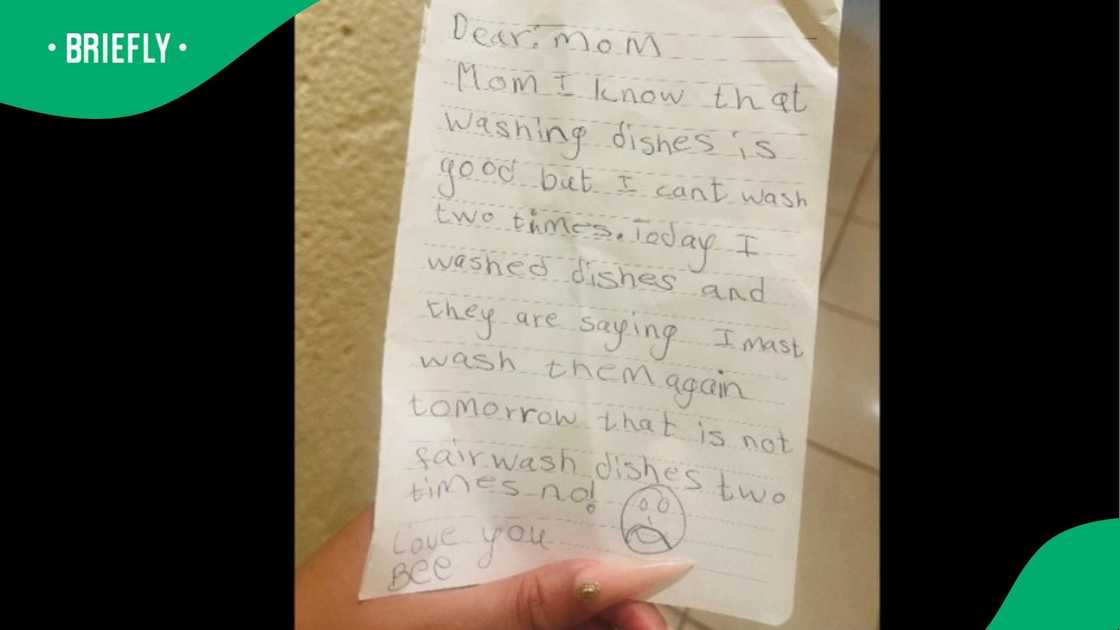 • BRIEFLY •
Dear. MOM
Mom I know that
washing dishes is
good but I cant wash
two times. Today I
washed dishes and
they are saying I mast
wash them again
tomorrow that is not
fair wash dishes two
times no!
Love you
Bee